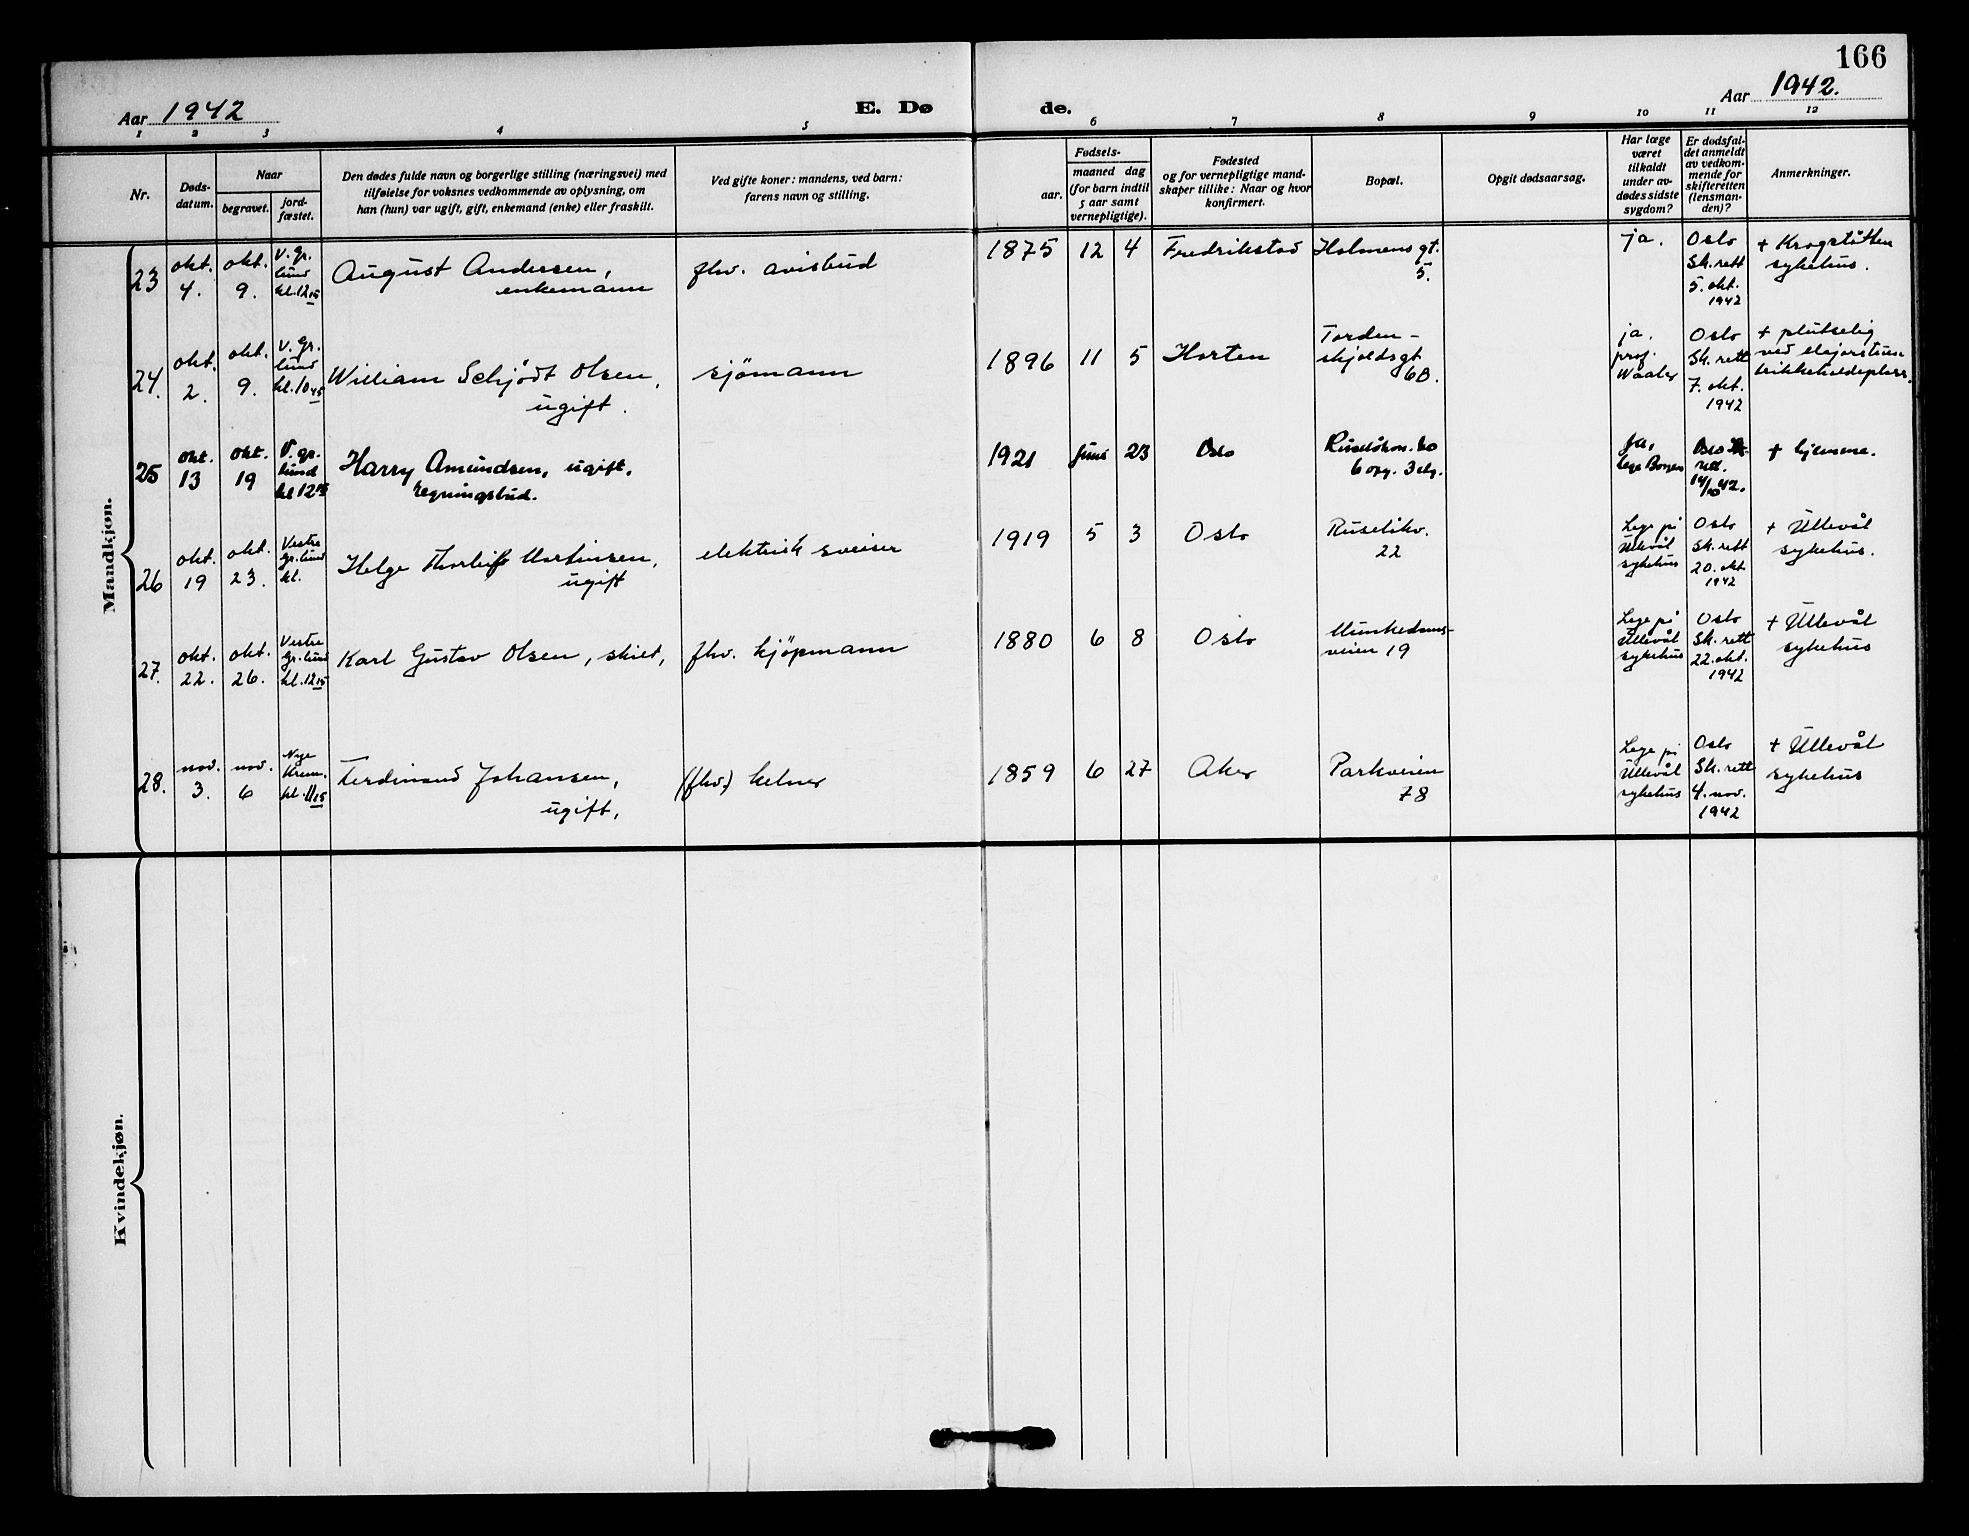 166
Aar 1942
E. Dø de.
Aar 1942.
1 2 3 4 5 6 7 8 9 10 11 12
Nr.
Døds-
datum.
Naar
begravet.
jord-
fæstet.
Den dødes fulde navn og borgerlige stilling (næringsvei) med
tilføielse for voksnes vedkommende av oplysning, om
han (hun) var ugift, gift, enkemand (enke) eller fraskilt.
Ved gifte koner: mandens, ved barn:
farens navn og stilling.
Fødsels-
aar.
maaned dag
(for barn indtil
5 aar samt
vernepligtige).
Fødested
og for vernepligtige mand-
skaper tillike: Naar og hvor
konfirmert.
Bopæl.
Opgit dødsaarsag.
Har læge
været
tilkaldt
under av-
dødes sidste
sygdom?
Er dødsfal-
det anmeldt
av vedkom-
mende for
skifteretten
(lensman-
den)?
Anmerkninger.
Mandkjøn.
23
okt.
4.
okt.
9.
V. Gr.
lund
kl. 12 15
August Andersen,
enkemann
fhv. avisbud
1875 12 4
Fredrikstad
Holmens gt.
5.
ja.
Oslo
Sk. rett
5. okt.
1942
+ Krogstøtten
sykehus.
24.
okt.
2.
okt.
9.
V. Gr.
lund
kl. 10 45
William Schjödt Olsen,
ugift.
sjömann
1896 11 5
Horten
Torden-
skjoldsgt
6B.
ja.
prof.
Waaler
Oslo
Sk. rett
7. okt.
1942
+ plutselig
ved Majorstuen
trikkeholdeplass.
25
okt.
13
okt.
19
V. gr.
lund
kl 12 15
Harry Amundsen, ugift.
regningsbud.
1921 juni 23
Oslo
6 opg. 3 etg.
ja,
lege
Oslo
14/10 42.
+ hjemme.
26
okt.
19
okt.
23.
Vestre
Gr. lund
kl.
Helge Thorleif Martinsen,
ugift
elektrisk sveiser
1919 5 3
Oslo
Ruselökv.
22
Lege på
Ullevål
sykehus
Oslo
Sk. rett
20. okt
1942
+ Ullevål
sykehus.
27.
okt.
22.
okt.
26.
Vestre
Gr. lund
kl. 12 15
Karl Gustav Olsen, skilt,
fhv. kjöpmann
1880 6 8
Oslo
Munkedams-
veien 19
Lege på
Ullevål
sykehus
Oslo
Sk. rett
22. okt.
1942
+ Ullevål
sykehus
28.
nov.
3.
nov.
6
Nye
Krem.
kl. 11 15
Ferdinand Johansen,
ugift,
(fhv.) kelner
1859 6 27
Aker
Parkveien
78
Lege på
Ullevål
sykehus
Oslo
Sk. rett
4. nov.
1942
+ Ullevål
sykehus
Kvindekjøn.